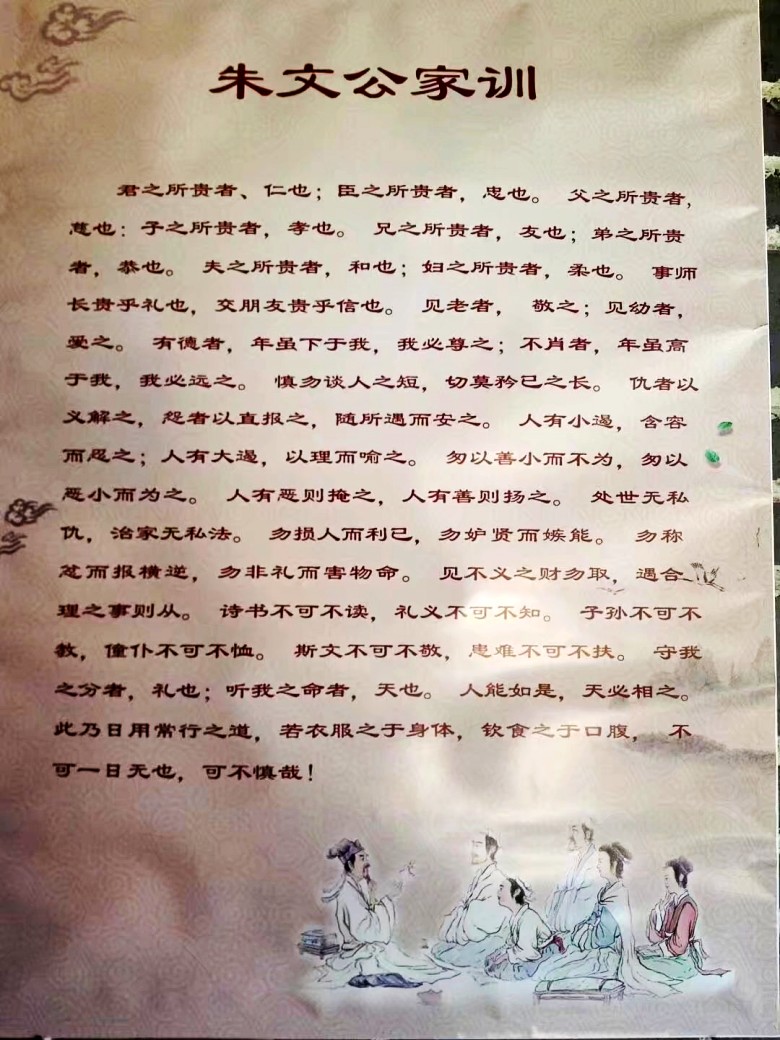 朱文公家训
君之所贵者、仁也；臣之所贵者，忠也。 父之所贵者，
慈也；子之所贵者，孝也。 兄之所贵者，友也；弟之所贵
者，恭也。 夫之所贵者，和也；妇之所贵者，柔也。 事师
长贵乎礼也，交朋友贵乎信也。 见老者， 敬之；见幼者，
爱之。 有德者，年虽下于我，我必尊之；不肖者，年虽高
于我，我必远之。 慎勿谈人之短，切莫矜已之长。 仇者以
义解之，怨者以直报之，随所遇而安之。 人有小过，含容
而忍之；人有大过，以理而喻之。 勿以善小而不为，勿以
恶小而为之。 人有恶则掩之，人有善则扬之。 处世无私
仇，治家无私法。 勿损人而利已，勿妒贤而嫉能。 勿称
忿而报横逆，勿非礼而害物命。 见不义之财勿取，遇合
理之事则从。 诗书不可不读，礼义不可不知。 子孙不可不
教，僮仆不可不恤。 斯文不可不敬，患难不可不扶。 守我
之分者，礼也；听我之命者，天也。 人能如是，天必相之。
此乃日用常行之道，若衣服之于身体，饮食之于口腹， 不
可一日无也，可不慎哉！